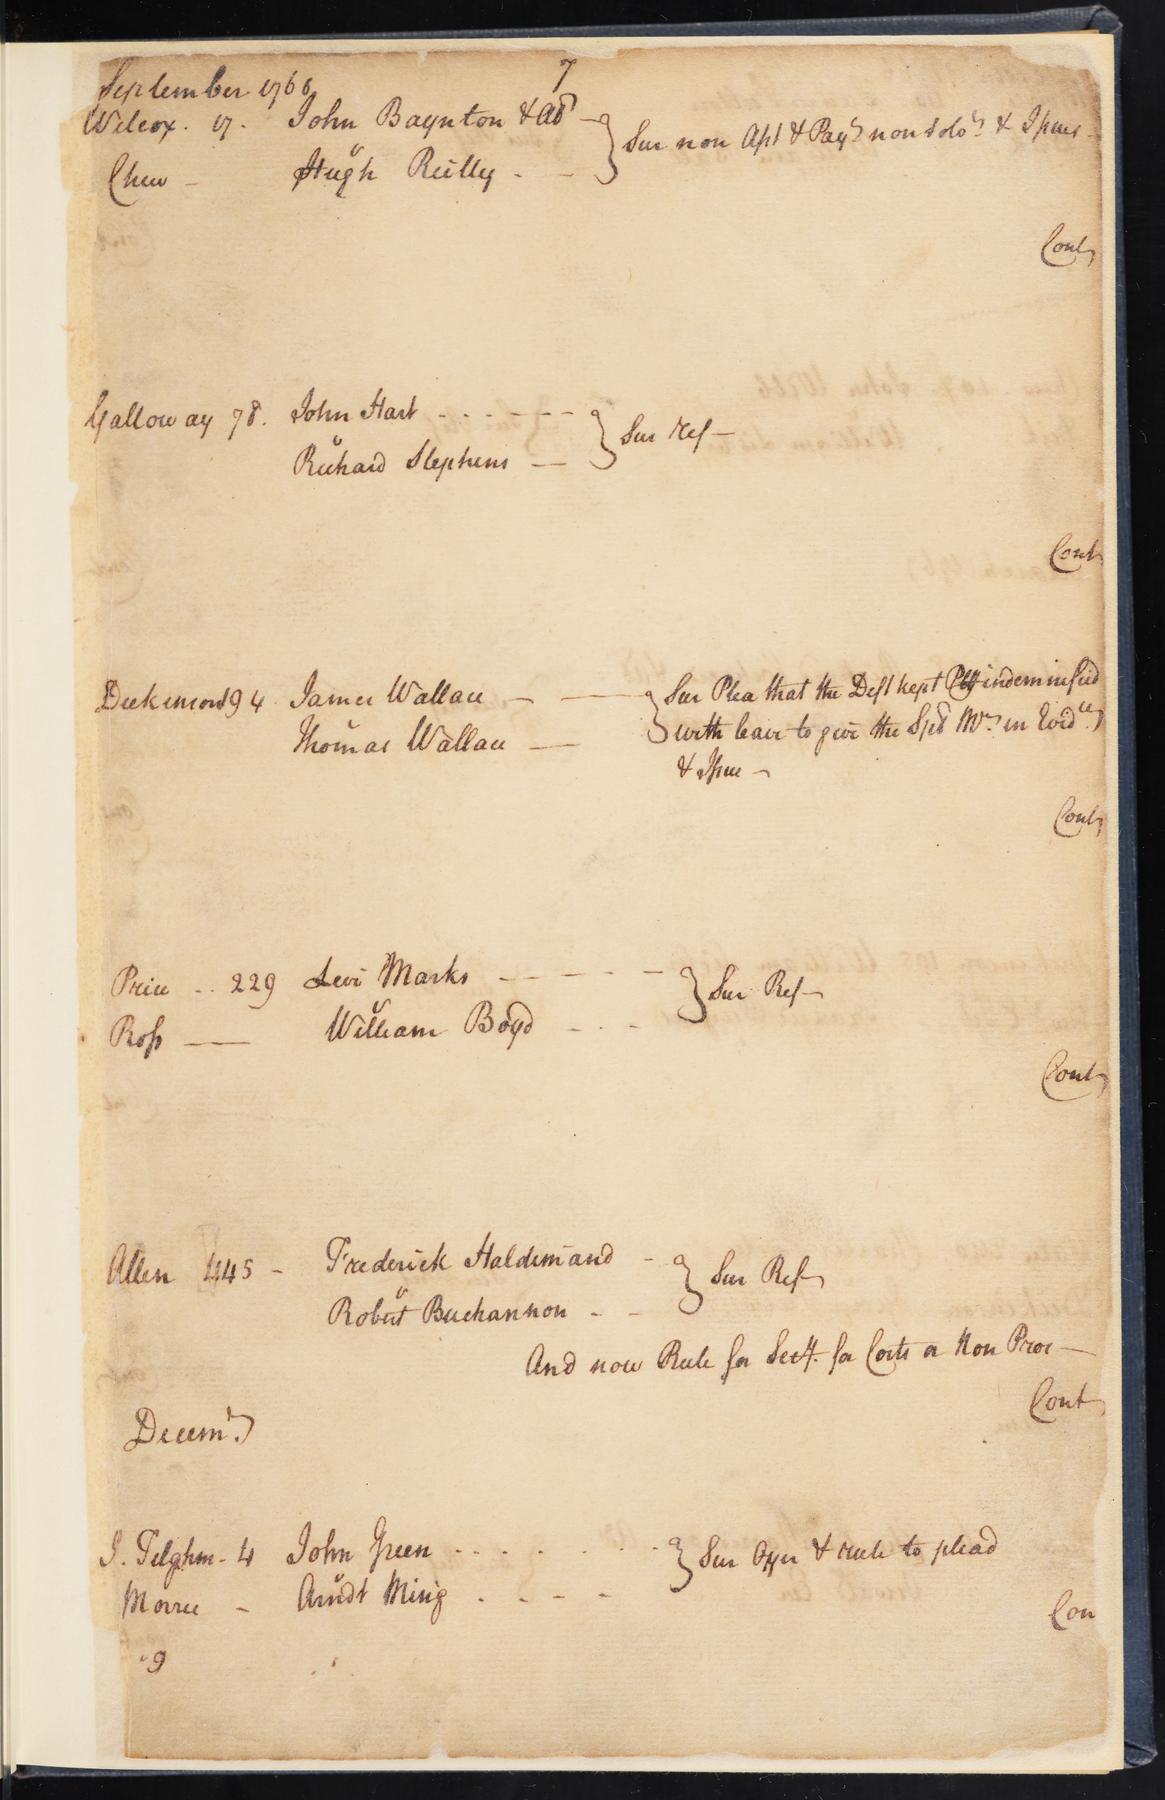 7
September 1766
Wilcox. 17. John Baynton & al — } Sur non Asst & Paymt non solvt & Issues —
Chew — v Hugh Reilly . —
Cont
Galloway 78. John Hart - - - - - - } Sur ref —
v Richard Stephens —
Cont
Dickinson 94 James Wallace — — } Sur Plea that the Deft kept Plff indemnified
v Thomas Wallace — with leave to give the Spl Mr in Evidce
& Issue —
Cont
Price .. 229 Levi Marks - - - - - } Sur Ref
Ross — v William Boyd - . -
Cont
Allen 445 — Frederick Haldimand - } Sur Ref
v Robert Buchannon - -
And now Rule for Sect. for Costs or Non Pros —
Cont
Decemr
J. Tilghm - 4 John Green - - . . . . . } Sur Oyer & rule to plead
Morris — v Arndt Ming . - - -
Con
9